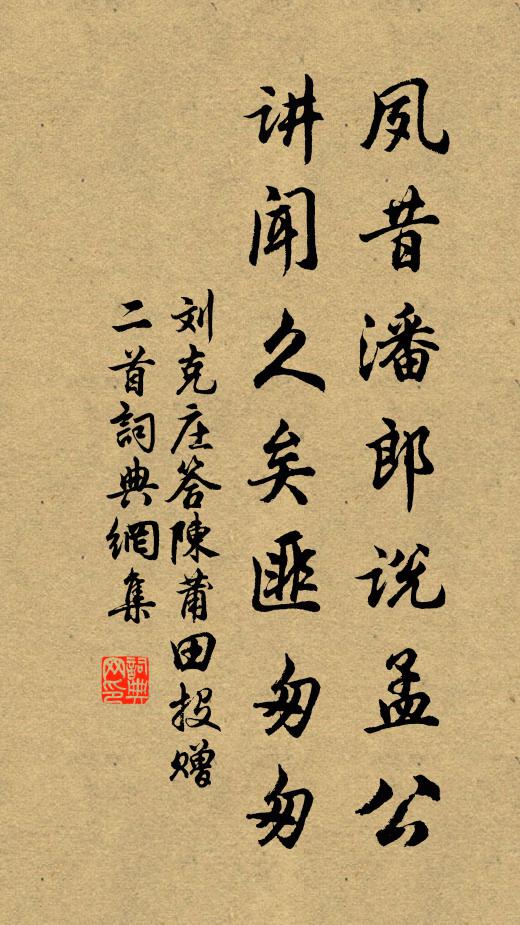 夙昔潘郎说孟公
讲闻久矣匪匆匆
刘克庄答陳莆田投赠
二首詞典網集
詞典网印